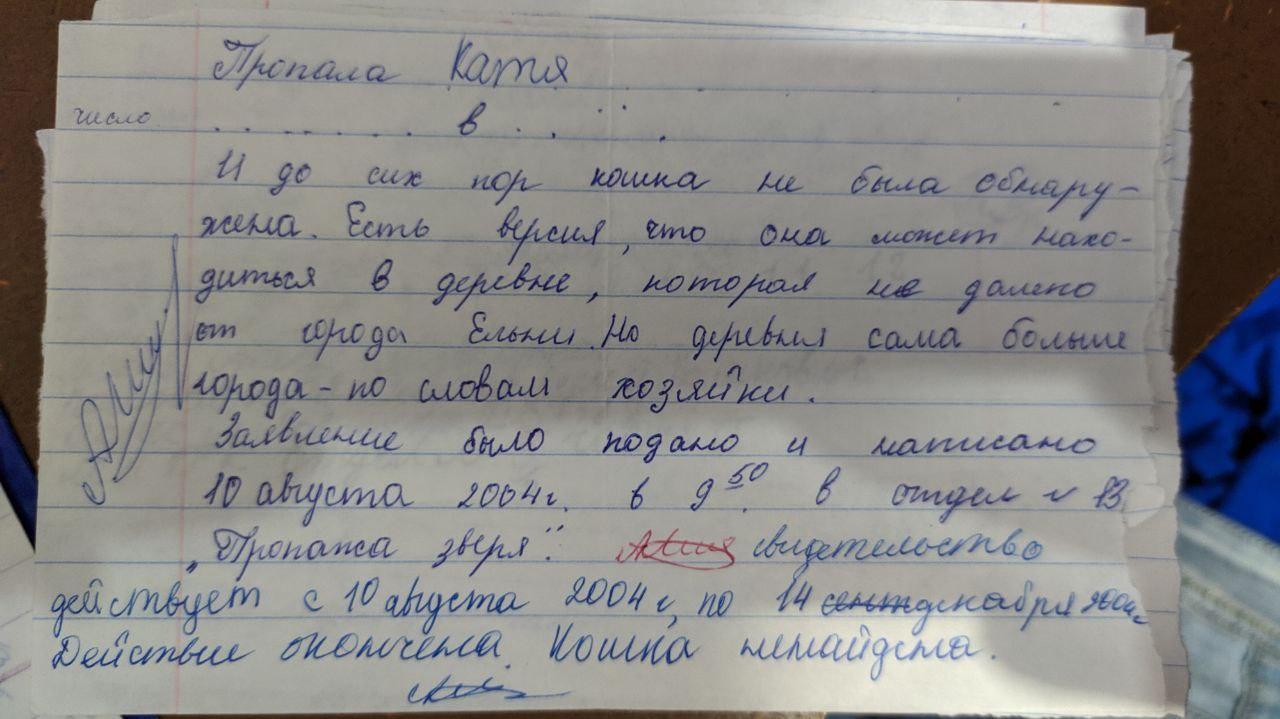 Пропала Катя
число . . . . . . . в . . .. .
И до сих пор кошка не была обнару-
жена. Есть версия, что она может нахо-
диться в деревне, которая не далеко
от города Ельни. Но деревня сама больше
города - по словам хозяйки.
Заявление было подано и написано
10 августа 2004г. в 9 50. в отдел № 13
„Пропажа зверя". свидетельство
действует с 10 августа 2004 г, по 14 декабря 2004г
Действие окончена. Кошка ненайдена.